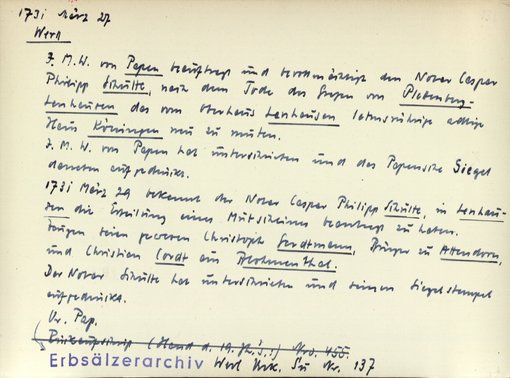 1731 März 27
Werl
F. M. W. von Papen beauftragt und bevollmächtigt den Notar Caspar
Philipp Schulte, nach dem Tode des Grafen von Plettenberg-
Lenhausen das vom Oberhaus Lenhausen lehnsrührige adlige
Haus Köningen neu zu muten.
F. M. W. von Papen hat unterschrieben und das Papensche Siegel
daneben aufgedrückt.
1731 März 29 bekennt der Notar Caspar Philipp Schulte, in Lenhau-
sen die Erteilung eines Mutscheines beantragt zu haben.
Zeugen seien gewesen Christoph Gerdtmann, Bürger zu Attendorn,
und Christian Cordt am Blohmenthal.
Der Notar Schulte hat unterschrieben und seinen Siegelstempel
aufgedrückt.
Or. Pap.
(Hand d. 19. Jh.s.) Nro. 455.
Erbsälzerarchiv Werl Urk. Su Nr. 137